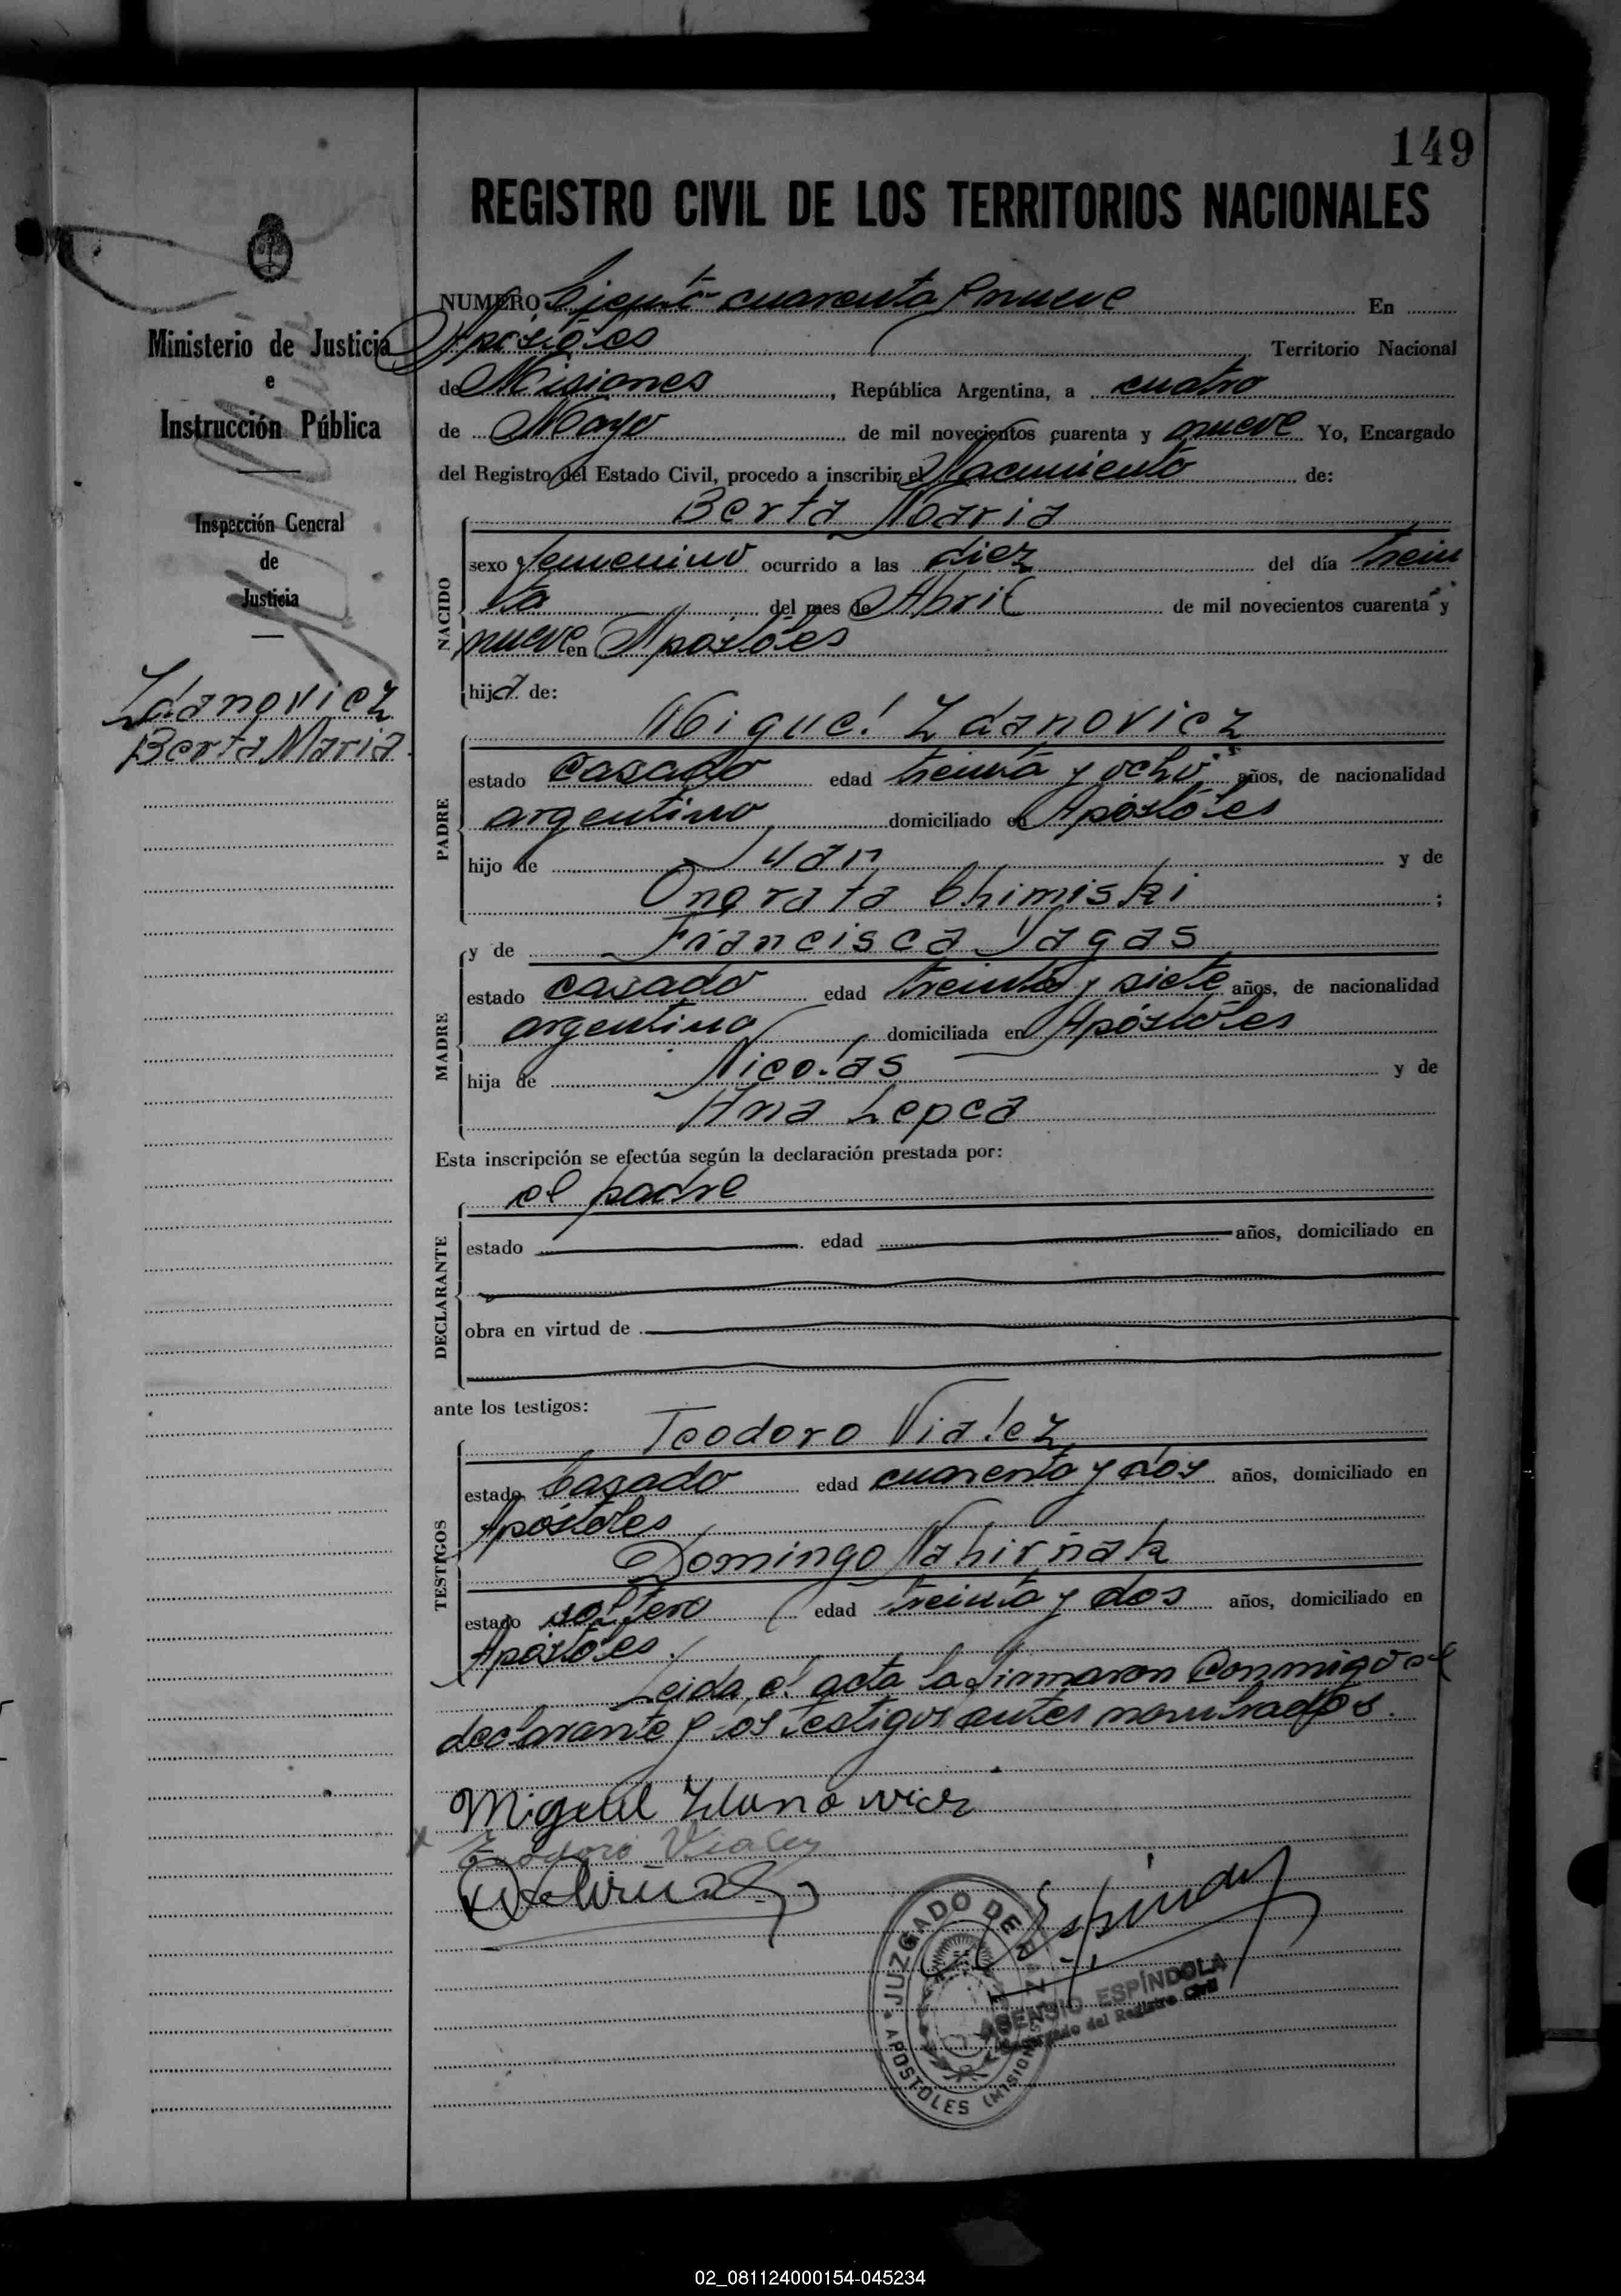 149
REGISTRO CIVIL DE LOS TERRITORIOS NACIONALES
Ministerio de Justicia
e
Instrucción Pública
Inspección General
de
Justicia
Zdanovicz
Berta Maria
NUMERO Ciento cuarenta y nueve En
Apóstoles Territorio Nacional
de Misiones, República Argentina, a cuatro
de Mayo de mil novecientos cuarenta y nueve Yo, Encargado
del Registro del Estado Civil, procedo a inscribir el Nacimiento de:
Berta Maria
NACIDO
sexo femenino ocurrido a las diez del día trein
ta del mes de Abril de mil novecientos cuarenta y
nueve en Apostoles
hija de:
Miguel Zdanovicz
PADRE
estado casado edad treinta y ocho años, de nacionalidad
argentino domiciliado en Apóstoles
hijo de Juan y de
Onorata Chimiski ;
y de Francisca Yagas
MADRE
estado casado edad treinta y siete años, de nacionalidad
argentina domiciliada en Apóstoles
hija de Nicolás y de
Ana Lepca
Esta inscripción se efectúa según la declaración prestada por:
el padre
DECLARANTE
estado edad años, domiciliado en
obra en virtud de
ante los testigos:
Teodoro Vialez
TESTIGOS
estado Casado edad cuarenta y dos años, domiciliado en
Apóstoles
Domingo Nahirñak
estado soltero edad treinta y dos años, domiciliado en
Apóstoles.
Leida el acta la firmaron conmigo el
declarante y los testigos antes nombrados.
Miguel Zdanowicz
Teodoro Vialez
Espindola
JUZGADO DE PAZ
APOSTOLES (MISIONES)
ASENSIO ESPÍNDOLA
Encargado del Registro Civil
02_081124000154-045234